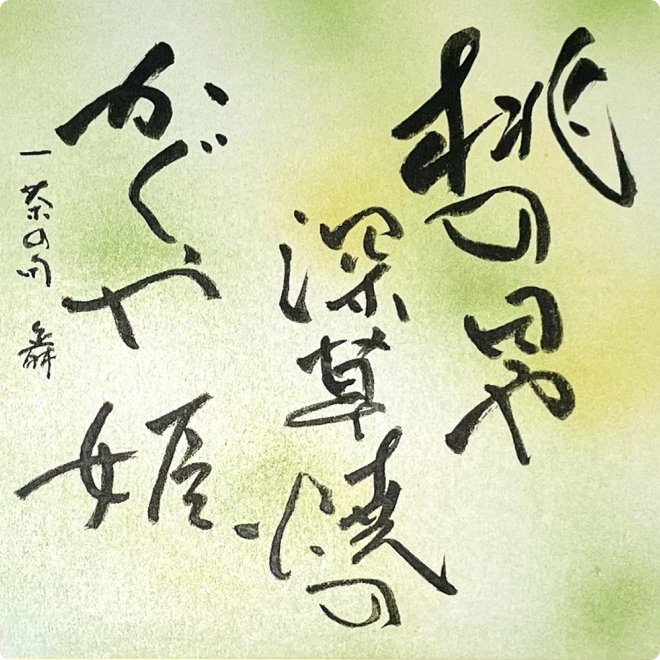 桃の日や
深草焼の
かぐや姫
一茶の句 舞